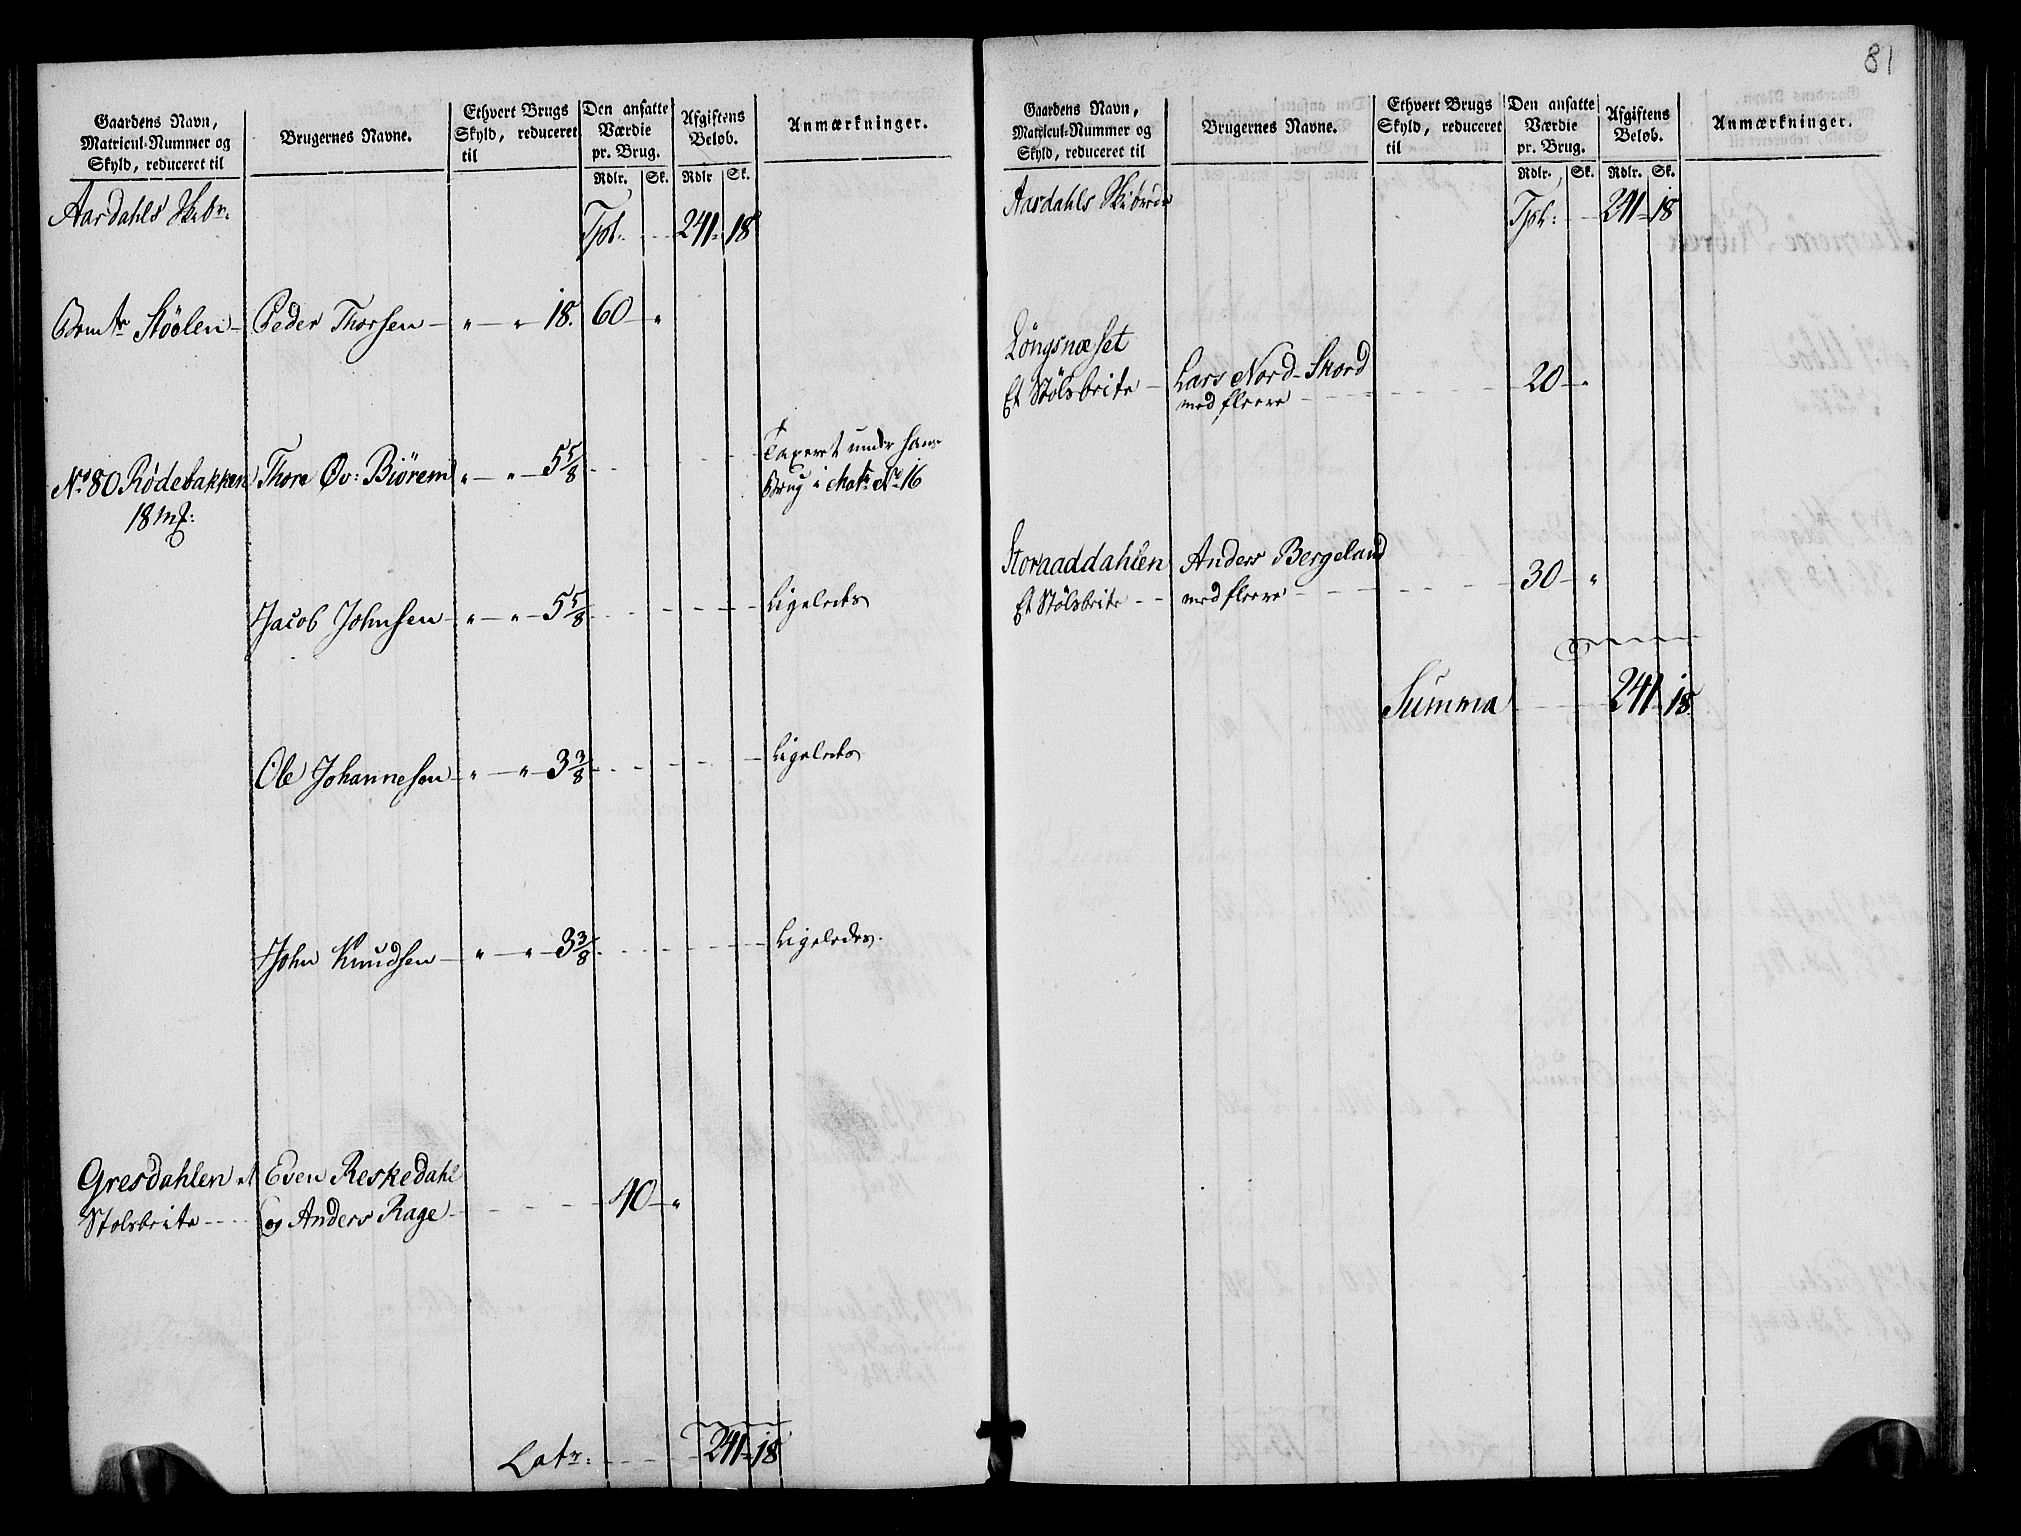 81
Gaardens Navn,
Matricul-Nummer og
Skyld, reduceret til
Brugernes Navne.
Ethvert Brugs
Skyld, reduceret
til
Den ansatte
Værdie
pr. Brug.
Rdlr. Sk.
Afgiftens
Beløb.
Rdlr Sk.
Anmærkninger.
Aardahls Skibr: Tpt: 241 18
Støolen Peder Thorsen „ „ 18. 60 „
No 80 Rødebakken Thore Øv: Biörem „ „ 5 5/8 Taxeret under hans
18 mk: Brug i Matr: No 16
Jacob Johnsen „ „ 5 5/8 Ligeledes
Ole Johannesen „ „ 3 3/8 Ligeledes
John Knudsen „ „ 3 3/8 Ligeledes.
Gresdahlen et Even Reskedahl
Stølsbeite og Anders Rage 40 „
Latr: 241 18
Gaardens Navn,
Matricul-Nummer og
Skyld, reduceret til
Brugernes Navne.
Ethvert Brugs
Skyld, reduceret
til
Den ansatte
Værdie
pr. Brug.
Rdlr. Sk.
Afgiftens
Beløb.
Rdlr. Sk.
Anmærkninger.
Aardahls Skibrede Tpt: 241 18
Löngsnæset
Et Stølsbeite Lars Nord-Skord 20 „
med fleere
Storaaddahlen Anders Bergeland
Et Stølsbeite med fleere 30 „
Summa 241 18.